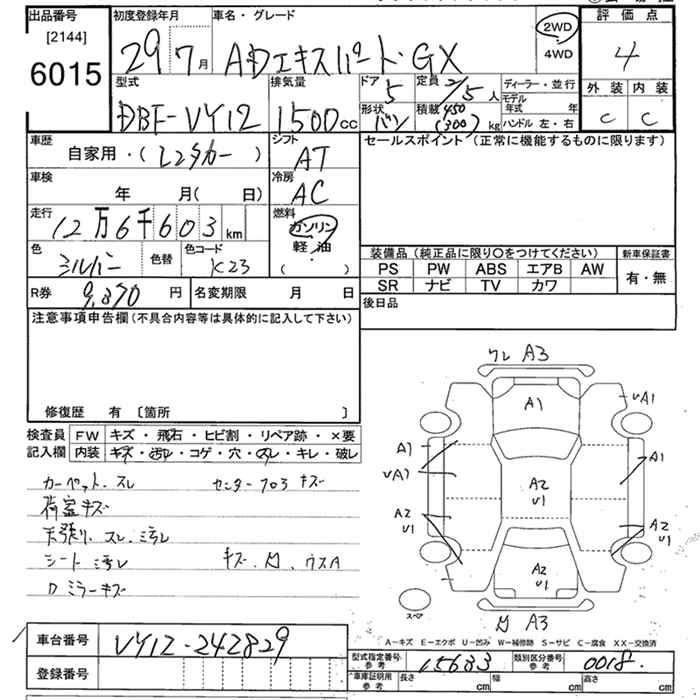 出品番号
[2144]
6015
初度登録年月
29 7月
車名・グレード
ADエキスパート GX
2WD
4WD
評価点
4
外装 内装
C C
型式
DBF-VY12
排気量
1500cc
ドア
5
形状
バン
定員
2/5人
積載
450
(300)kg
ディーラー・並行
モデル年式 年
ハンドル 左・右
車歴
自家用・(レンタカー)
シフト
AT
車検
年 月(日)
冷房
AC
走行
12万6千603km
燃料
ガソリン
軽・油
( )
色
シルバー
色替
色コード
K23
R券
9,870円
名変期限 月 日
セールスポイント(正常に機能するものに限ります)
装備品(純正品に限り〇をつけてください)
PS PW ABS エアB AW
SR ナビ TV カワ
新車保証書
有・無
後日品
注意事項申告欄(不具合内容等は具体的に記入して下さい)
修復歴 有 [箇所 ]
検査員記入欄
FW キズ・飛石・ヒビ割・リペア跡・×要
内装 キズ・汚れ・コゲ・穴・スレ・キレ・破レ
カーペット スレ
荷室キズ
天張り、スレ、ミラレ
シート
キズ、凹、ウスA
ミラーキズ
ワレ A3
A1
VA1
A1
VA1
A1
A2
V1
A2
V1
A2
V1
A2
V1
スペア
A3
A-キズ E-エクボ U-凹み W-補修跡 S-サビ C-腐食 XX-交換済
車台番号
VY12-242829
登録番号
型式指定番号 参考
15633
類別区分番号 参考
0018
車庫証明用 参考
長さ cm
幅 cm
高さ cm